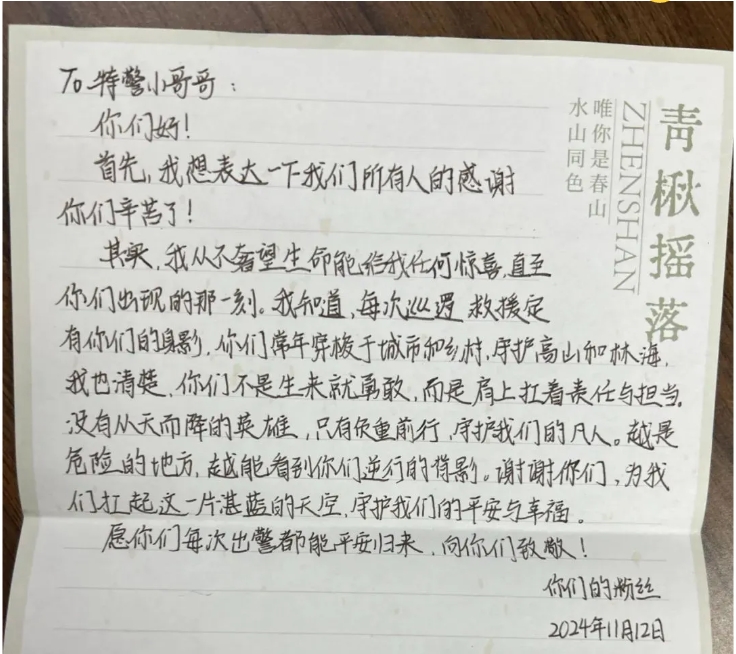 To 特警小哥哥：
你们好！
首先，我想表达一下我们所有人的感谢
你们辛苦了！
其实，我从不奢望生命能给我任何惊喜，直至
你们出现的那一刻。我知道，每次巡逻救援定
有你们的身影，你们常年穿梭于城市和乡村，守护高山和林海，
我也清楚，你们不是生来就勇敢，而是肩上扛着责任与担当。
没有从天而降的英雄，只有负重前行，守护我们的凡人。越是
危险的地方，越能看到你们逆行的背影。谢谢你们，为我
们扛起这一片湛蓝的天空，守护我们的平安与幸福。
愿你们每次出警都能平安归来，向你们致敬！
你们的粉丝
2024年11月12日
青楸摇落
ZHENSHAN
唯你是春山
水山同色